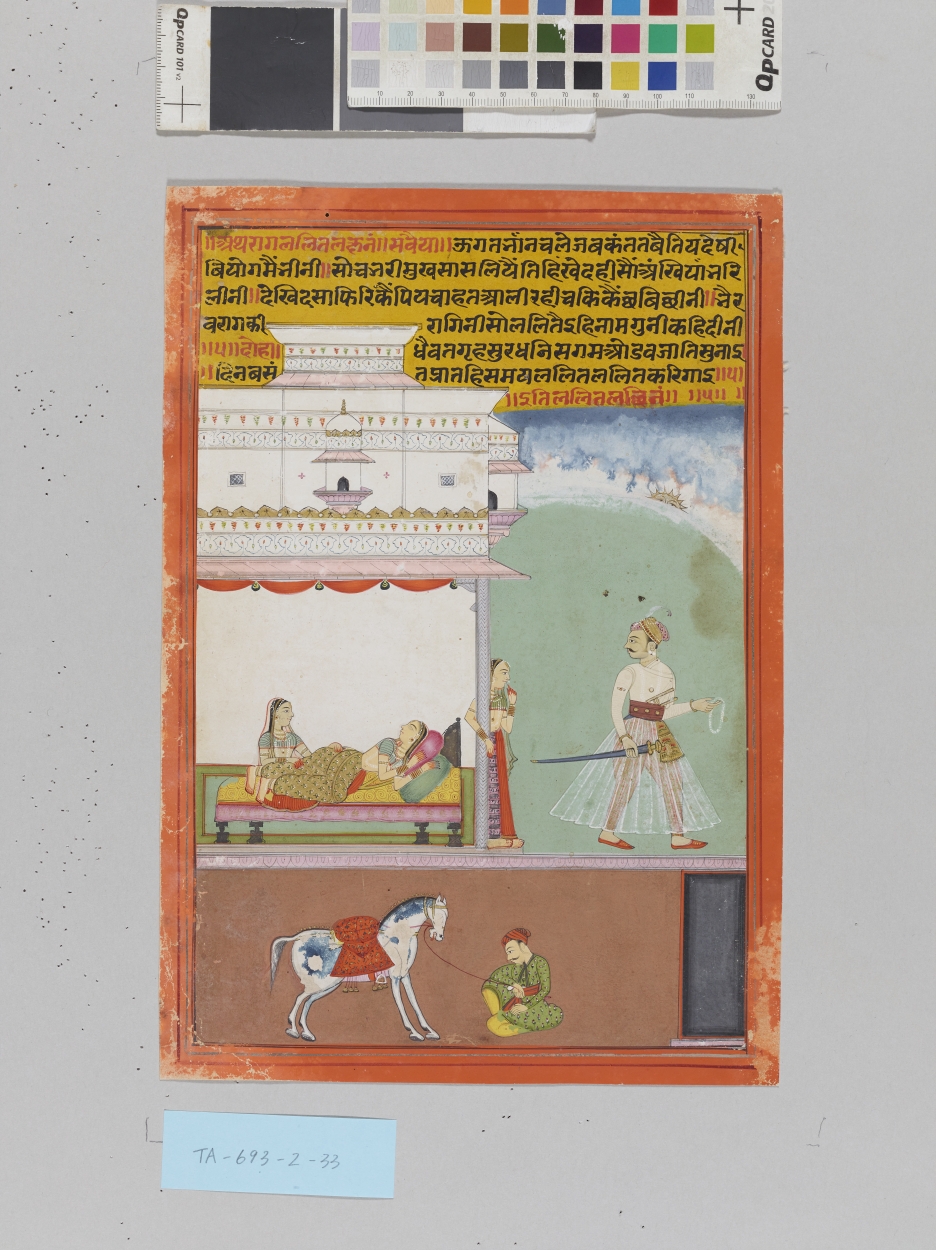 QPCARD 101 v2
10 20 30 40 50 60 70 80 90 100 110 130
QPCARD
॥अथरागललितलछनं॥सवैया॥ऊगतभाँनचलेजबकंततबैतियदेषी
बियोगमैंभीनी॥सोचभरीमुखसासलियैंतिहिखेदहीसौंअंखियाँभरि
लीनी॥देखिदसाफिरिकैंपियचाहतआलीरहीचकिकैंछबिछीनी॥भैर
वरागकी रागिनीसोललितैऽहिनामगुनीकहिदीनी
॥५॥दोहा॥ धैवतगृहसुरधनिसगमऔडवजातिसुनाऽ
।दिनबसं तप्रातहिसमयललितललितकरिगाऽ॥५॥
॥ऽतिललितलछिनं॥ ॥५॥ ॥
TA-693-2-33